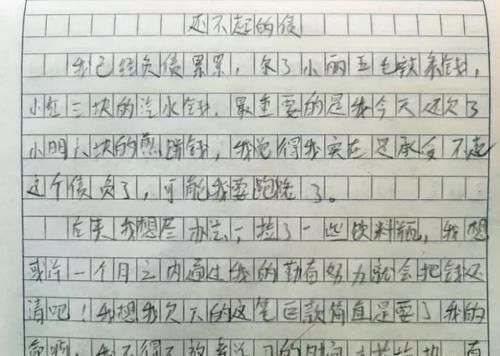 还不起的债
我已经负债累累，欠了小丽五毛钱辣条钱，
小红三块的汽水钱，最重要的是我今天还欠了
小明六块的煎饼钱，我觉得我实在是承受不起
这个债负了，可能我要跑路了。
后来我想尽办法，捡了一些饮料瓶，我想
或许一个月之内通过我的勤奋努力就会把钱还
清吧！我想我欠下的这笔巨款简直是要了我的
我不得不放弃学习的时间